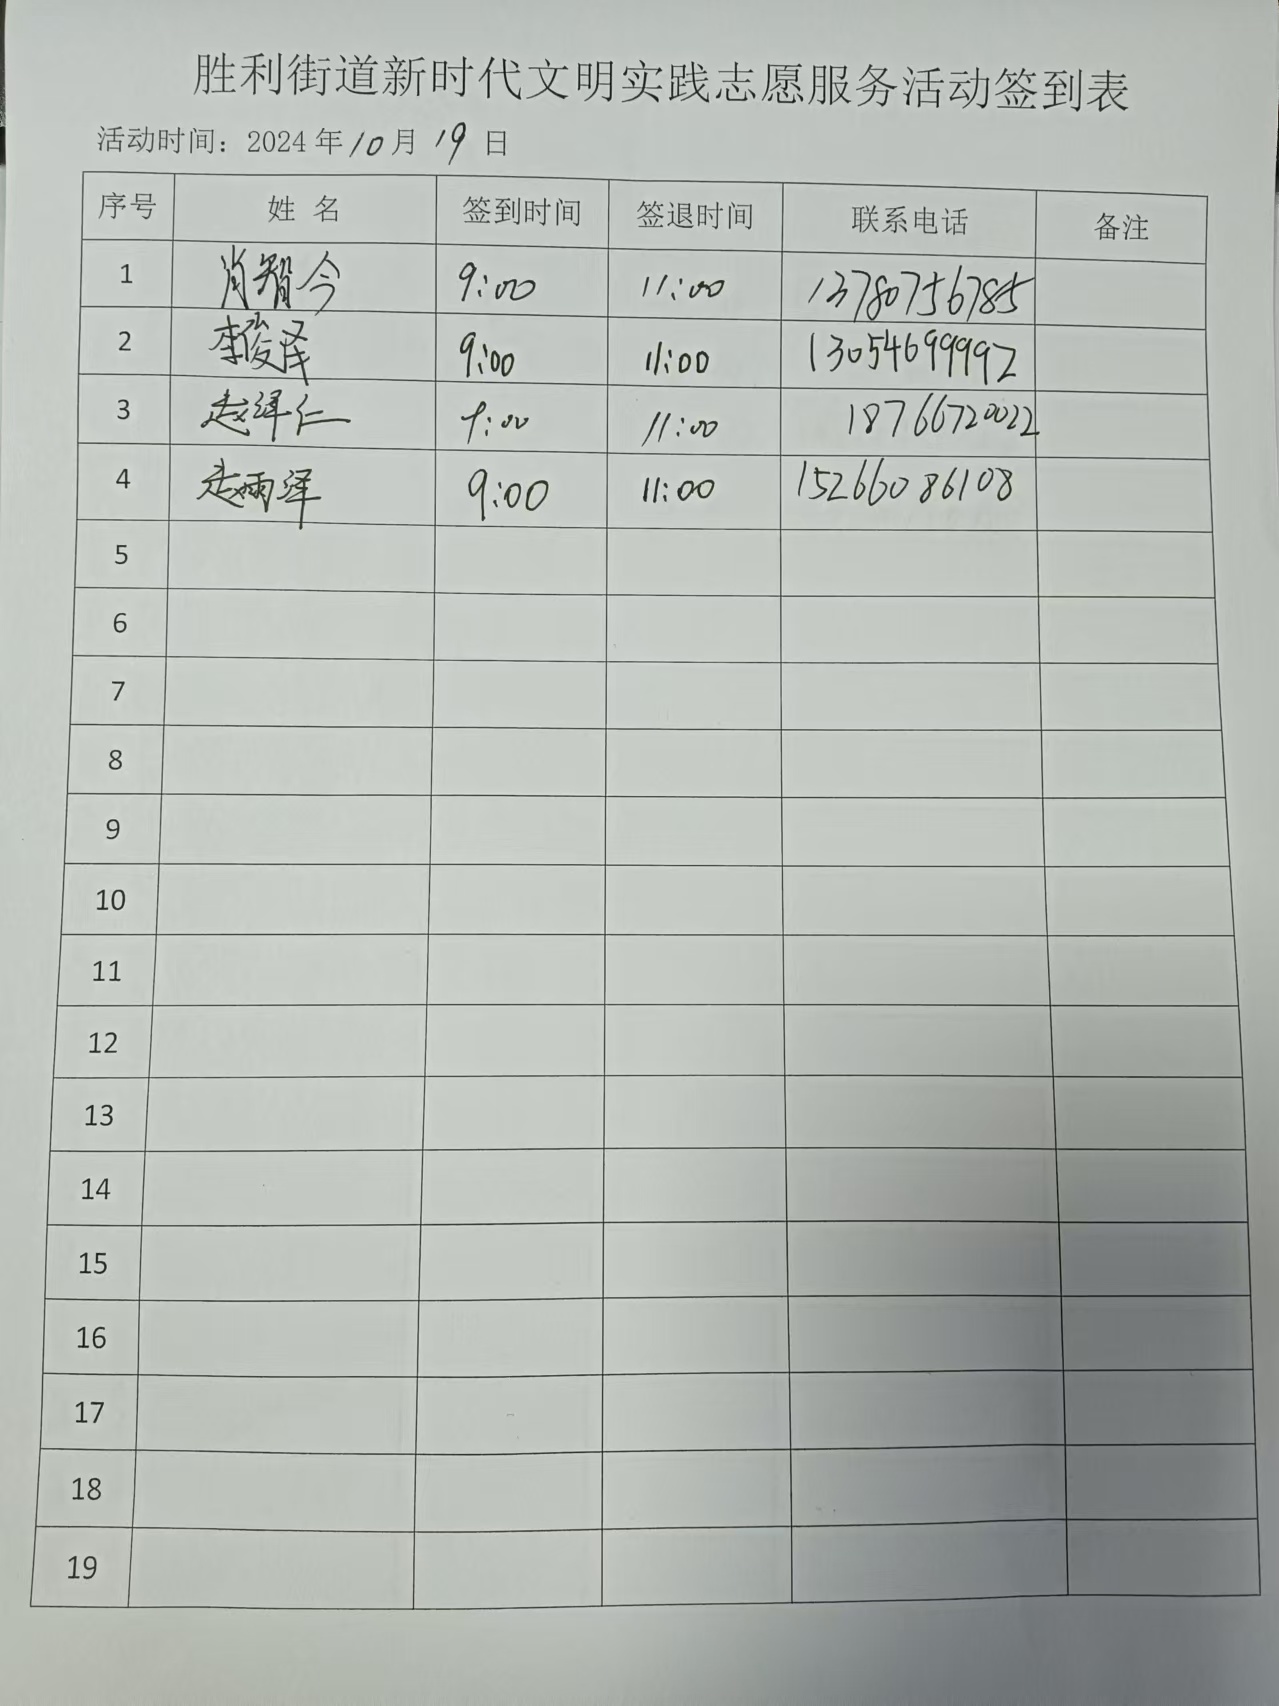 胜利街道新时代文明实践志愿服务活动签到表
活动时间：2024年10月19日
序号 姓 名 签到时间 签退时间 联系电话 备注
1 肖智今 9:00 11:00 13780756785
2 李俊泽 9:00 11:00 13054699992
3 赵泽仁 9:00 11:00 18766720022
4 赵雨泽 9:00 11:00 15266086108
5
6
7
8
9
10
11
12
13
14
15
16
17
18
19